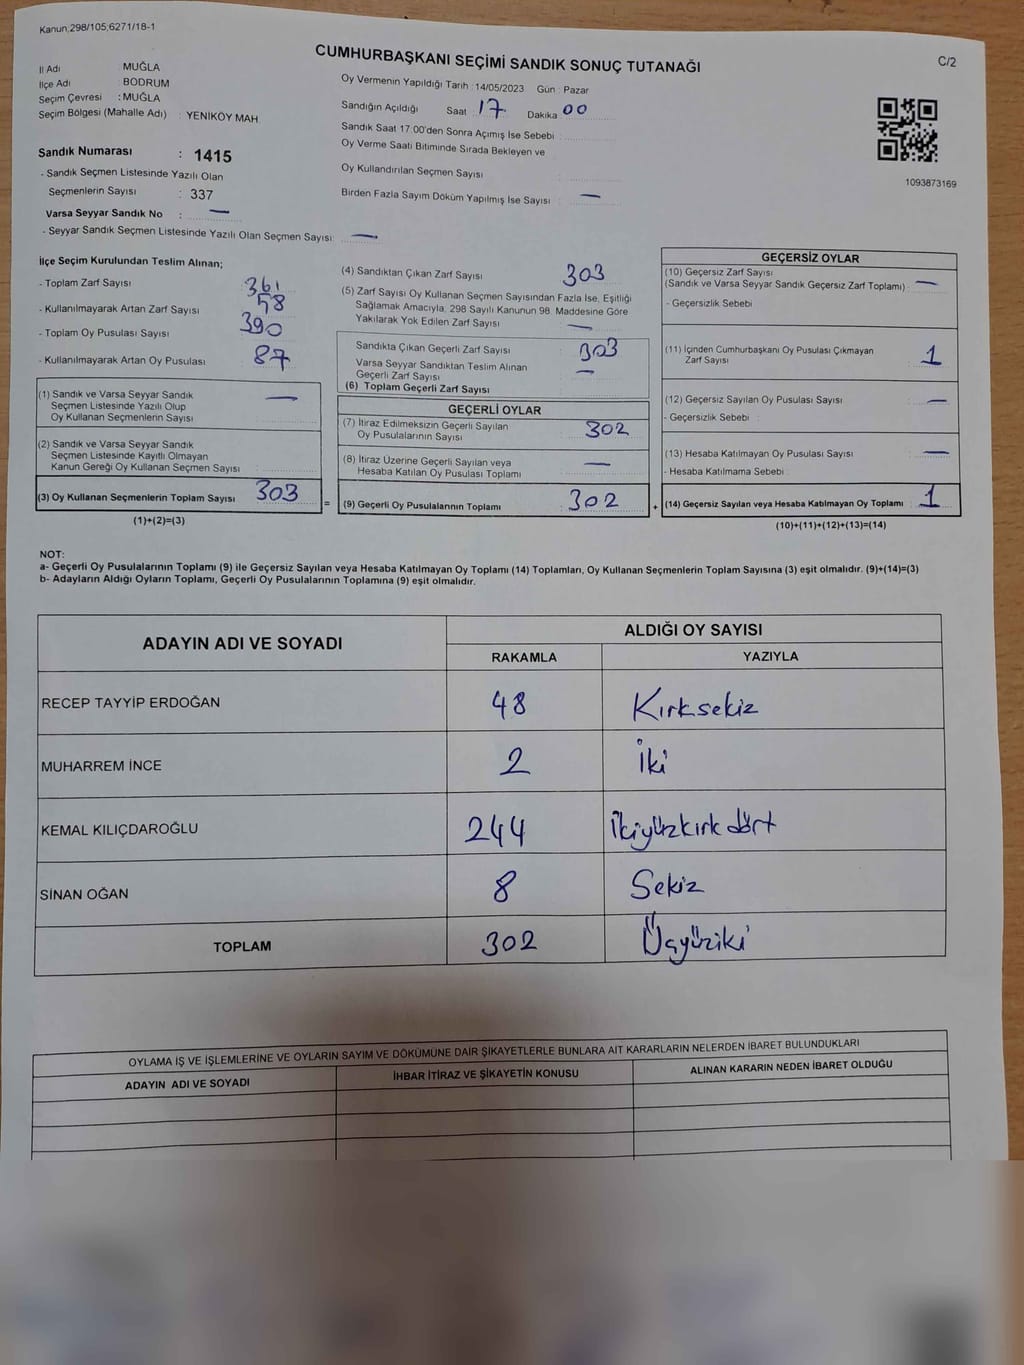 Kanun;298/105;6271/18-1
CUMHURBAŞKANI SEÇİMİ SANDIK SONUÇ TUTANAĞI
C/2
İl Adı : MUĞLA
İlçe Adı : BODRUM
Seçim Çevresi : MUĞLA
Seçim Bölgesi (Mahalle Adı) : YENİKÖY MAH.
Oy Vermenin Yapıldığı Tarih : 14/05/2023 Gün : Pazar
Sandığın Açıldığı Saat 17 Dakika 00
Sandık Saat 17:00'den Sonra Açımış İse Sebebi :
Oy Verme Saati Bitiminde Sırada Bekleyen ve
Oy Kullandırılan Seçmen Sayısı :
Birden Fazla Sayım Döküm Yapılmış İse Sayısı : —
1093873169
Sandık Numarası : 1415
- Sandık Seçmen Listesinde Yazılı Olan
Seçmenlerin Sayısı : 337
Varsa Seyyar Sandık No : —
- Seyyar Sandık Seçmen Listesinde Yazılı Olan Seçmen Sayısı: —
İlçe Seçim Kurulundan Teslim Alınan;
- Toplam Zarf Sayısı 361
- Kullanılmayarak Artan Zarf Sayısı 58
- Toplam Oy Pusulası Sayısı 390
- Kullanılmayarak Artan Oy Pusulası 87
(1) Sandık ve Varsa Seyyar Sandık
Seçmen Listesinde Yazılı Olup
Oy Kullanan Seçmenlerin Sayısı —
(2) Sandık ve Varsa Seyyar Sandık
Seçmen Listesinde Kayıtlı Olmayan
Kanun Gereği Oy Kullanan Seçmen Sayısı :
(3) Oy Kullanan Seçmenlerin Toplam Sayısı 303
(1)+(2)=(3)
(4) Sandıktan Çıkan Zarf Sayısı 303
(5) Zarf Sayısı Oy Kullanan Seçmen Sayısından Fazla İse, Eşitliği
Sağlamak Amacıyla, 298 Sayılı Kanunun 98. Maddesine Göre
Yakılarak Yok Edilen Zarf Sayısı —
Sandıkta Çıkan Geçerli Zarf Sayısı 303
Varsa Seyyar Sandıktan Teslim Alınan
Geçerli Zarf Sayısı —
(6) Toplam Geçerli Zarf Sayısı
GEÇERLİ OYLAR
(7) İtiraz Edilmeksizin Geçerli Sayılan
Oy Pusulalarının Sayısı 302
(8) İtiraz Üzerine Geçerli Sayılan veya
Hesaba Katılan Oy Pusulası Toplamı —
= (9) Geçerli Oy Pusulalarının Toplamı 302
GEÇERSİZ OYLAR
(10) Geçersiz Zarf Sayısı
(Sandık ve Varsa Seyyar Sandık Geçersiz Zarf Toplamı) : —
- Geçersizlik Sebebi
(11) İçinden Cumhurbaşkanı Oy Pusulası Çıkmayan
Zarf Sayısı 1
(12) Geçersiz Sayılan Oy Pusulası Sayısı —
- Geçersizlik Sebebi :
(13) Hesaba Katılmayan Oy Pusulası Sayısı —
- Hesaba Katılmama Sebebi :
+ (14) Geçersiz Sayılan veya Hesaba Katılmayan Oy Toplamı 1
(10)+(11)+(12)+(13)=(14)
NOT:
a- Geçerli Oy Pusulalarının Toplamı (9) ile Geçersiz Sayılan veya Hesaba Katılmayan Oy Toplamı (14) Toplamları, Oy Kullanan Seçmenlerin Toplam Sayısına (3) eşit olmalıdır. (9)+(14)=(3)
b- Adayların Aldığı Oyların Toplamı, Geçerli Oy Pusulalarının Toplamına (9) eşit olmalıdır.
ADAYIN ADI VE SOYADI
ALDIĞI OY SAYISI
RAKAMLA YAZIYLA
RECEP TAYYİP ERDOĞAN 48 Kırksekiz
MUHARREM İNCE 2 İki
KEMAL KILIÇDAROĞLU 244 İkiyüzkırk dört
SİNAN OĞAN 8 Sekiz
TOPLAM 302 Üçyüziki
OYLAMA İŞ VE İŞLEMLERİNE VE OYLARIN SAYIM VE DÖKÜMÜNE DAİR ŞİKAYETLERLE BUNLARA AİT KARARLARIN NELERDEN İBARET BULUNDUKLARI
ADAYIN ADI VE SOYADI İHBAR İTİRAZ VE ŞİKAYETİN KONUSU ALINAN KARARIN NEDEN İBARET OLDUĞU